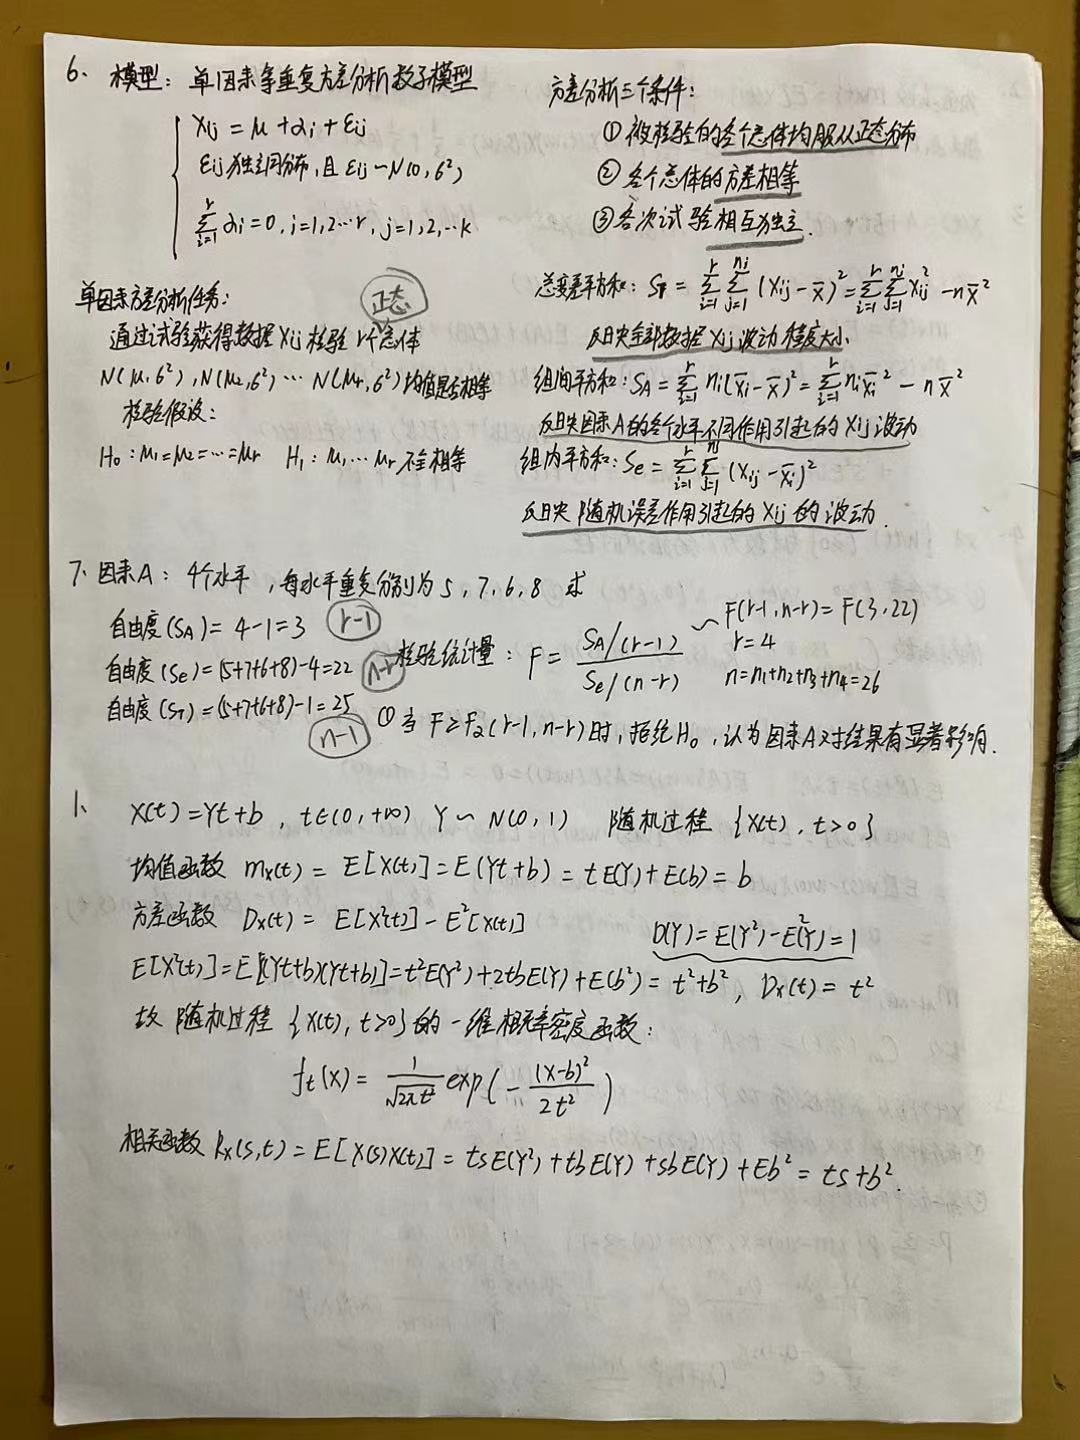 6、模型：单因素等重复方差分析数学模型
Xij = μ + αi + εij
εij独立同分布，且 εij ~ N(0, б²)
r∑i=1 αi = 0, i=1,2…r, j=1,2,…k
方差分析三个条件：
①被检验的各个总体均服从正态分布
②各个总体的方差相等
③各次试验相互独立.
单因素方差分析任务：
正态
通过试验获得数据Xij检验r个总体
N(μ1,б²),N(μ2,б²)…N(μr,б²)均值是否相等
检验假设：
H0：μ1=μ2=…=μr H1：μ1,…μr不全相等
总变差平方和：ST = r∑i=1 ni∑j=1 (Xij - X̄)² = r∑i=1 ni∑j=1 Xij² - nX̄²
反映全部数据Xij波动程度大小
组间平方和：SA = r∑i=1 ni(X̄i - X̄)² = r∑i=1 niX̄i² - nX̄²
反映因素A的各个水平不同作用引起的Xij波动
组内平方和：Se = r∑i=1 ni∑j=1 (Xij - X̄i)²
反映随机误差作用引起的Xij的波动.
7、因素A：4个水平，每水平重复分别为5,7,6,8 求
自由度(SA) = 4-1=3 r-1
自由度(Se) = (5+7+6+8)-4=22 n-r
自由度(ST) = (5+7+6+8)-1=25
n-1
检验统计量：F = SA/(r-1) / Se/(n-r) ~ F(r-1, n-r) = F(3,22)
r=4
n=n1+n2+n3+n4=26
①当F≥Fα(r-1,n-r)时,拒绝H0,认为因素A对结果有显著影响.
1、
X(t) = Yt+b, t∈(0,+∞) Y ~ N(0,1) 随机过程{X(t), t>0}
均值函数 mx(t) = E[X(t)] = E(Yt+b) = tE(Y)+E(b) = b
方差函数 Dx(t) = E[X²(t)] - E²[X(t)]
D(Y)=E(Y²)-E²(Y)=1
E[X²(t)] = E[(Yt+b)(Yt+b)] = t²E(Y²)+2tbE(Y)+E(b²) = t²+b², Dx(t) = t²
故随机过程{X(t), t>0}的一维概率密度函数：
ft(x) = 1/√2π t exp(-(x-b)²/2t²)
相关函数 Rx(s,t) = E[X(s)X(t)] = tsE(Y²)+tbE(Y)+sbE(Y)+Eb² = ts+b².